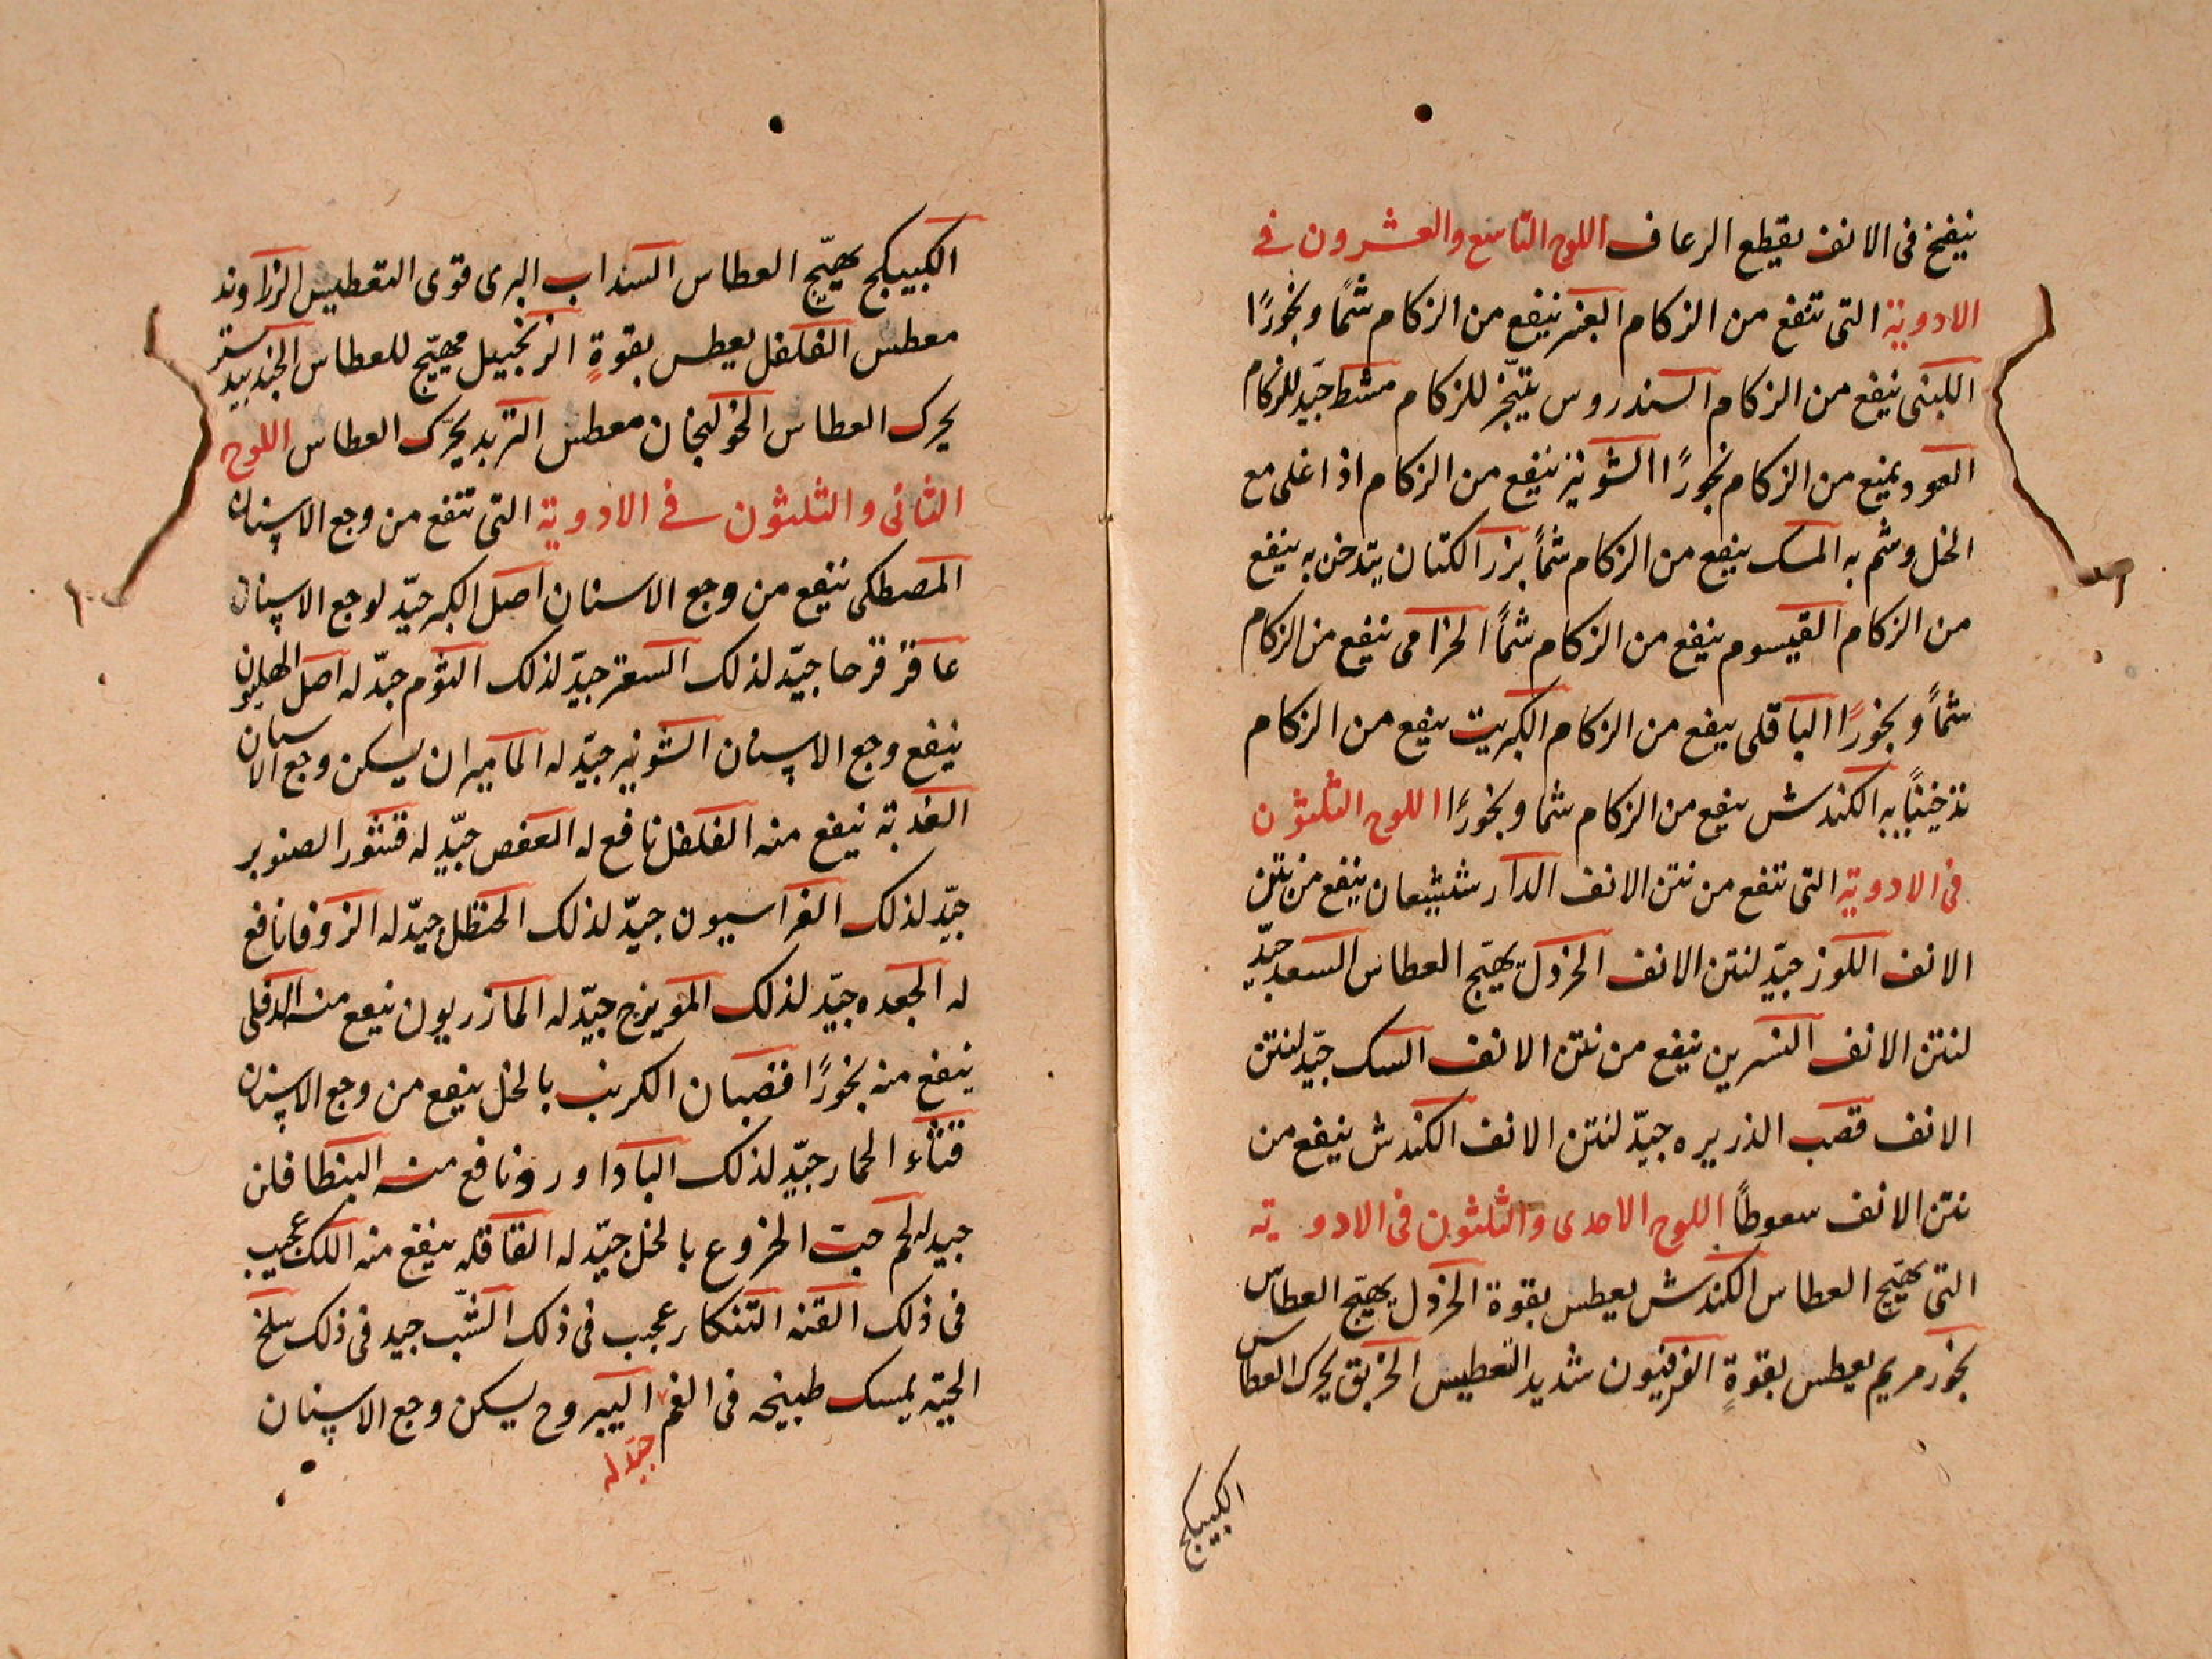 ينفخ فى الانف يقطع الرعاف اللوح التاسع والعشرون فے
الادوية التى تنفع من الزكام العنبر ينفع من الزكام شمًا وبخورًا
اللبنى ينفع من الزكام السندروس للزكام مشط جيّد للزكام
العود يمنع من الزكام بخورًا الشونيز ينفع من الزكام اذا غلى مع
الخل وشم به المسك ينفع من الزكام شمًا بزر الكتان يتدخن به ينفع
من الزكام القيسوم ينفع من الزكام شمًا الخزامى ينفع من الزكام
شمًا وبخورًا الباقلى ينفع من الزكام الكبريت ينفع من الزكام
تدخينًا به الكندش ينفع من الزكام شما وبخورًا اللوح الثلثون
فى الادوية التى تنفع من نتن الانف الدار شيشعان ينفع من نتن
الانف اللوز جيّد لنتن الانف الخردل يهيّج العطاس السعد جيّد
لنتن الانف النسرين ينفع من نتن الانف السك جيّد لنتن
الانف قصب الذريره جيّد لنتن الانف الكندش ينفع من
نتن الانف سعوطًا اللوح الاحدى والثلثون فى الادوية
التى تهيّج العطاس الكندش يعطس بقوة الخردل يهيّج العطاس
بخور مريم يعطس بقوةٍ الفرفيون شديد التعطيس الخربق يحرك العطاس
الكبيكج
الكبيكج يهيّج العطاس السنداب البرى قوى التعطيس الزراوند
معطس الفلفل يعطس بقوةٍ الزنجبيل مهيّج للعطاس الجندبيدستر
يحرك العطاس الخولنجان معطس التربد يحرّك العطاس اللوح
الثانى والثلثون فے الادوية التى تنفع من وجع الاسنان
المصطكى ينفع من وجع الاسنان اصل الكبر جيّد لوجع الاسنان
عاقر قرحا جيّد لذلك السعتر جيّد لذلك الثوم جيّد له اصل الهليون
ينفع وجع الاسنان الشونيز جيّد له الماميران يسكن وجع الاسنان
العذبة ينفع منه الفلفل نافع له العفص جيّد له قشور الصنوبر
جيّد لذلك الفراسيون جيّد لذلك الحنظل جيّد له الزوفا نافع
له الجعده جيّد لذلك المويزج جيّد له المازريون ينفع منه الدفلى
ينفع منه بخورًا قضبان الكرنب بالخل ينفع من وجع الاسنان
قثاء الحمار جيّد لذلك الباداورد نافع منه البنطافلن
جيد له حب الخروع بالخل جيّد له القاقله ينفع منه اللك عجيب
فى ذلك القنه التنكار عجيب فى ذلك الشّب جيد فى ذلك سلخ
الحيّة يمسك طبيخه فى الفم اليبروح يسكن وجع الاسنان
جيّد له